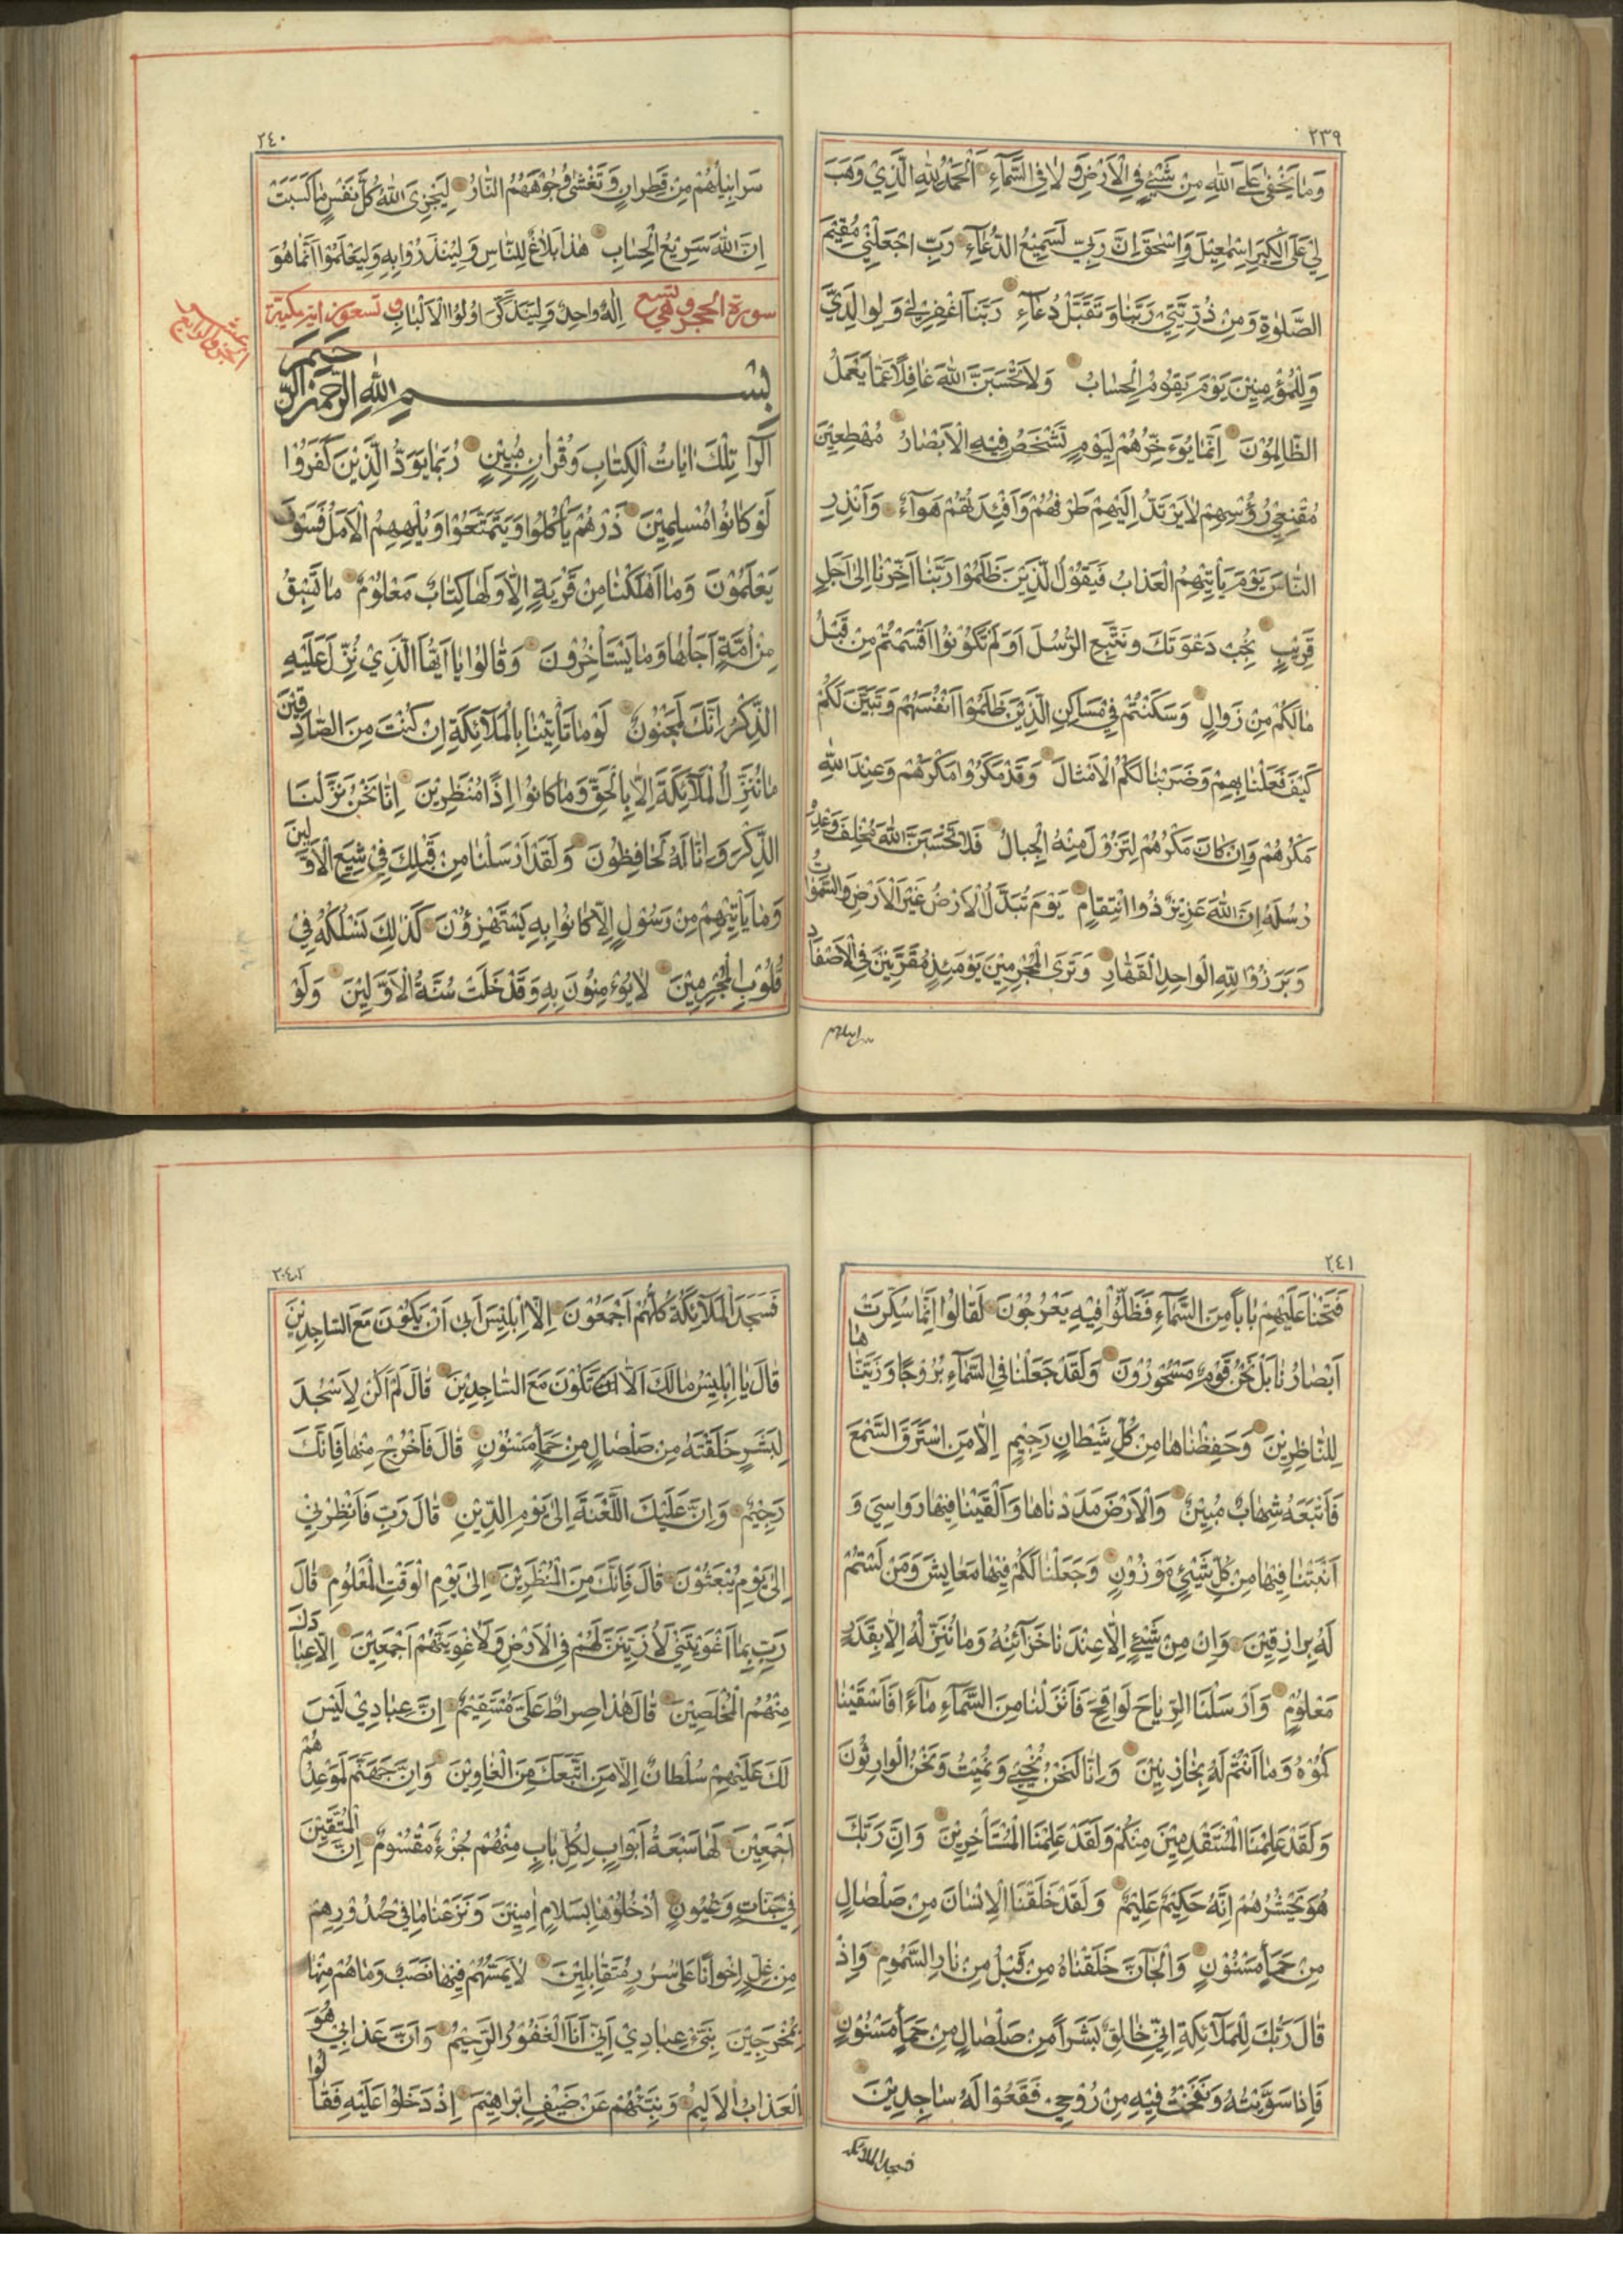 ٢٣٩
وَمَا يَخْفٰى عَلَى اللّٰهِ مِنْ شَيْءٍ فِي الْاَرْضِ وَلَا فِي السَّمَآءِ اَلْحَمْدُ لِلّٰهِ الَّذِيْ وَهَبَ
لِيْ عَلَى الْكِبَرِ اِسْمٰعِيْلَ وَاِسْحٰقَ اِنَّ رَبِّيْ لَسَمِيْعُ الدُّعَآءِ رَبِّ اجْعَلْنِيْ مُقِيْمَ
الصَّلٰوةِ وَمِنْ ذُرِّيَّتِيْ رَبَّنَا وَتَقَبَّلْ دُعَآءِ رَبَّنَا اغْفِرْ لِيْ وَلِوَالِدَيَّ
وَلِلْمُؤْمِنِيْنَ يَوْمَ يَقُوْمُ الْحِسَابُ وَلَا تَحْسَبَنَّ اللّٰهَ غَافِلًا عَمَّا يَعْمَلُ
الظَّالِمُوْنَ اِنَّمَا يُؤَخِّرُهُمْ لِيَوْمٍ تَشْخَصُ فِيْهِ الْاَبْصَارُ مُهْطِعِيْنَ
مُقْنِعِيْ رُؤُسِهِمْ لَا يَرْتَدُّ اِلَيْهِمْ طَرْفُهُمْ وَاَفْئِدَتُهُمْ هَوَآءٌ وَاَنْذِرِ
النَّاسَ يَوْمَ يَأْتِيْهِمُ الْعَذَابُ فَيَقُوْلُ الَّذِيْنَ ظَلَمُوْا رَبَّنَا اَخِّرْنَا اِلٰى اَجَلٍ
قَرِيْبٍ نُجِبْ دَعْوَتَكَ وَنَتَّبِعِ الرُّسُلَ اَوَلَمْ تَكُوْنُوْا اَقْسَمْتُمْ مِنْ قَبْلُ
مَا لَكُمْ مِنْ زَوَالٍ وَسَكَنْتُمْ فِيْ مَسَاكِنِ الَّذِيْنَ ظَلَمُوْا اَنْفُسَهُمْ وَتَبَيَّنَ لَكُمْ
كَيْفَ فَعَلْنَا بِهِمْ وَضَرَبْنَا لَكُمُ الْاَمْثَالَ وَقَدْ مَكَرُوْا مَكْرَهُمْ وَعِنْدَ اللّٰهِ
مَكْرُهُمْ وَاِنْ كَانَ مَكْرُهُمْ لِتَزُوْلَ مِنْهُ الْجِبَالُ فَلَا تَحْسَبَنَّ اللّٰهَ مُخْلِفَ وَعْدِهِ
رُسُلَهُ اِنَّ اللّٰهَ عَزِيْزٌ ذُو انْتِقَامٍ يَوْمَ تُبَدَّلُ الْاَرْضُ غَيْرَ الْاَرْضِ وَالسَّمٰوَاتُ
وَبَرَزُوْا لِلّٰهِ الْوَاحِدِ الْقَهَّارِ وَتَرَى الْمُجْرِمِيْنَ يَوْمَئِذٍ مُقَرَّنِيْنَ فِي الْاَصْفَادِ
سرابيلهم
٢٤٠
سَرَابِيْلُهُمْ مِنْ قَطِرَانٍ وَتَغْشٰى وُجُوْهَهُمُ النَّارُ لِيَجْزِيَ اللّٰهُ كُلَّ نَفْسٍ مَا كَسَبَتْ
اِنَّ اللّٰهَ سَرِيْعُ الْحِسَابِ هٰذَا بَلَاغٌ لِلنَّاسِ وَلِيُنْذَرُوْا بِهِ وَلِيَعْلَمُوْا اَنَّمَا هُوَ
سورة الحجر وهي تسع اِلٰهٌ وَاحِدٌ وَلِيَذَّكَّرَ اُولُوا الْاَلْبَابِ وتسعون اية مكية
الجزو الرابع عشر
بِسْمِ اللّٰهِ الرَّحْمٰنِ الرَّحِيمِ
الٓرٰ تِلْكَ اٰيَاتُ الْكِتَابِ وَقُرْاٰنٍ مُبِيْنٍ رُبَمَا يَوَدُّ الَّذِيْنَ كَفَرُوْا
لَوْ كَانُوْا مُسْلِمِيْنَ ذَرْهُمْ يَأْكُلُوْا وَيَتَمَتَّعُوْا وَيُلْهِهِمُ الْاَمَلُ فَسَوْفَ
يَعْلَمُوْنَ وَمَا اَهْلَكْنَا مِنْ قَرْيَةٍ اِلَّا وَلَهَا كِتَابٌ مَعْلُوْمٌ مَا تَسْبِقُ
مِنْ اُمَّةٍ اَجَلَهَا وَمَا يَسْتَأْخِرُوْنَ وَقَالُوْا يَا اَيُّهَا الَّذِيْ نُزِّلَ عَلَيْهِ
الذِّكْرُ اِنَّكَ لَمَجْنُوْنٌ لَوْ مَا تَأْتِيْنَا بِالْمَلَآئِكَةِ اِنْ كُنْتَ مِنَ الصَّادِقِيْنَ
مَا نُنَزِّلُ الْمَلَآئِكَةَ اِلَّا بِالْحَقِّ وَمَا كَانُوْا اِذًا مُنْظَرِيْنَ اِنَّا نَحْنُ نَزَّلْنَا
الذِّكْرَ وَاِنَّا لَهُ لَحَافِظُوْنَ وَلَقَدْ اَرْسَلْنَا مِنْ قَبْلِكَ فِيْ شِيَعِ الْاَوَّلِيْنَ
وَمَا يَأْتِيْهِمْ مِنْ رَسُوْلٍ اِلَّا كَانُوْا بِهِ يَسْتَهْزِؤُنَ كَذٰلِكَ نَسْلُكُهُ فِيْ
قُلُوْبِ الْمُجْرِمِيْنَ لَا يُؤْمِنُوْنَ بِهِ وَقَدْ خَلَتْ سُنَّةُ الْاَوَّلِيْنَ وَلَوْ
٢٤١
فَتَحْنَا عَلَيْهِمْ بَابًا مِنَ السَّمَآءِ فَظَلُّوْا فِيْهِ يَعْرُجُوْنَ لَقَالُوْا اِنَّمَا سُكِّرَتْ
اَبْصَارُنَا بَلْ نَحْنُ قَوْمٌ مَسْحُوْرُوْنَ وَلَقَدْ جَعَلْنَا فِي السَّمَآءِ بُرُوْجًا وَزَيَّنَّاهَا
لِلنَّاظِرِيْنَ وَحَفِظْنَاهَا مِنْ كُلِّ شَيْطَانٍ رَجِيْمٍ اِلَّا مَنِ اسْتَرَقَ السَّمْعَ
فَاَتْبَعَهُ شِهَابٌ مُبِيْنٌ وَالْاَرْضَ مَدَدْنَاهَا وَاَلْقَيْنَا فِيْهَا رَوَاسِيَ وَ
اَنْبَتْنَا فِيْهَا مِنْ كُلِّ شَيْءٍ مَوْزُوْنٍ وَجَعَلْنَا لَكُمْ فِيْهَا مَعَايِشَ وَمَنْ لَسْتُمْ
لَهُ بِرَازِقِيْنَ وَاِنْ مِنْ شَيْءٍ اِلَّا عِنْدَنَا خَزَآئِنُهُ وَمَا نُنَزِّلُهُ اِلَّا بِقَدَرٍ
مَعْلُوْمٍ وَاَرْسَلْنَا الرِّيَاحَ لَوَاقِحَ فَاَنْزَلْنَا مِنَ السَّمَآءِ مَآءً فَاَسْقَيْنَا
كُمُوْهُ وَمَا اَنْتُمْ لَهُ بِخَازِنِيْنَ وَاِنَّا لَنَحْنُ نُحْيِيْ وَنُمِيْتُ وَنَحْنُ الْوَارِثُوْنَ
وَلَقَدْ عَلِمْنَا الْمُسْتَقْدِمِيْنَ مِنْكُمْ وَلَقَدْ عَلِمْنَا الْمُسْتَأْخِرِيْنَ وَاِنَّ رَبَّكَ
هُوَ يَحْشُرُهُمْ اِنَّهُ حَكِيْمٌ عَلِيْمٌ وَلَقَدْ خَلَقْنَا الْاِنْسَانَ مِنْ صَلْصَالٍ
مِنْ حَمَأٍ مَسْنُوْنٍ وَالْجَآنَّ خَلَقْنَاهُ مِنْ قَبْلُ مِنْ نَارِ السَّمُوْمِ وَاِذْ
قَالَ رَبُّكَ لِلْمَلَآئِكَةِ اِنِّيْ خَالِقٌ بَشَرًا مِنْ صَلْصَالٍ مِنْ حَمَأٍ مَسْنُوْنٍ
فَاِذَا سَوَّيْتُهُ وَنَفَخْتُ فِيْهِ مِنْ رُوْحِيْ فَقَعُوْا لَهُ سَاجِدِيْنَ
فسجد الملائكة
٢٤٢
فَسَجَدَ الْمَلَآئِكَةُ كُلُّهُمْ اَجْمَعُوْنَ اِلَّا اِبْلِيْسَ اَبٰى اَنْ يَكُوْنَ مَعَ السَّاجِدِيْنَ
قَالَ يَا اِبْلِيْسُ مَا لَكَ اَلَّا تَكُوْنَ مَعَ السَّاجِدِيْنَ قَالَ لَمْ اَكُنْ لِاَسْجُدَ
لِبَشَرٍ خَلَقْتَهُ مِنْ صَلْصَالٍ مِنْ حَمَأٍ مَسْنُوْنٍ قَالَ فَاخْرُجْ مِنْهَا فَاِنَّكَ
رَجِيْمٌ وَاِنَّ عَلَيْكَ اللَّعْنَةَ اِلٰى يَوْمِ الدِّيْنِ قَالَ رَبِّ فَاَنْظِرْنِيْ
اِلٰى يَوْمِ يُبْعَثُوْنَ قَالَ فَاِنَّكَ مِنَ الْمُنْظَرِيْنَ اِلٰى يَوْمِ الْوَقْتِ الْمَعْلُوْمِ قَالَ
رَبِّ بِمَا اَغْوَيْتَنِيْ لَاُزَيِّنَنَّ لَهُمْ فِي الْاَرْضِ وَلَاُغْوِيَنَّهُمْ اَجْمَعِيْنَ اِلَّا عِبَادَكَ
مِنْهُمُ الْمُخْلَصِيْنَ قَالَ هٰذَا صِرَاطٌ عَلَيَّ مُسْتَقِيْمٌ اِنَّ عِبَادِيْ لَيْسَ
لَكَ عَلَيْهِمْ سُلْطَانٌ اِلَّا مَنِ اتَّبَعَكَ مِنَ الْغَاوِيْنَ وَاِنَّ جَهَنَّمَ لَمَوْعِدُهُمْ
اَجْمَعِيْنَ لَهَا سَبْعَةُ اَبْوَابٍ لِكُلِّ بَابٍ مِنْهُمْ جُزْءٌ مَقْسُوْمٌ اِنَّ الْمُتَّقِيْنَ
فِيْ جَنَّاتٍ وَعُيُوْنٍ اُدْخُلُوْهَا بِسَلَامٍ اٰمِنِيْنَ وَنَزَعْنَا مَا فِيْ صُدُوْرِهِمْ
مِنْ غِلٍّ اِخْوَانًا عَلٰى سُرُرٍ مُتَقَابِلِيْنَ لَا يَمَسُّهُمْ فِيْهَا نَصَبٌ وَمَا هُمْ مِنْهَا
بِمُخْرَجِيْنَ نَبِّئْ عِبَادِيْ اَنِّيْ اَنَا الْغَفُوْرُ الرَّحِيْمُ وَاَنَّ عَذَابِيْ هُوَ
الْعَذَابُ الْاَلِيْمُ وَنَبِّئْهُمْ عَنْ ضَيْفِ اِبْرَاهِيْمَ اِذْ دَخَلُوْا عَلَيْهِ فَقَالُوا